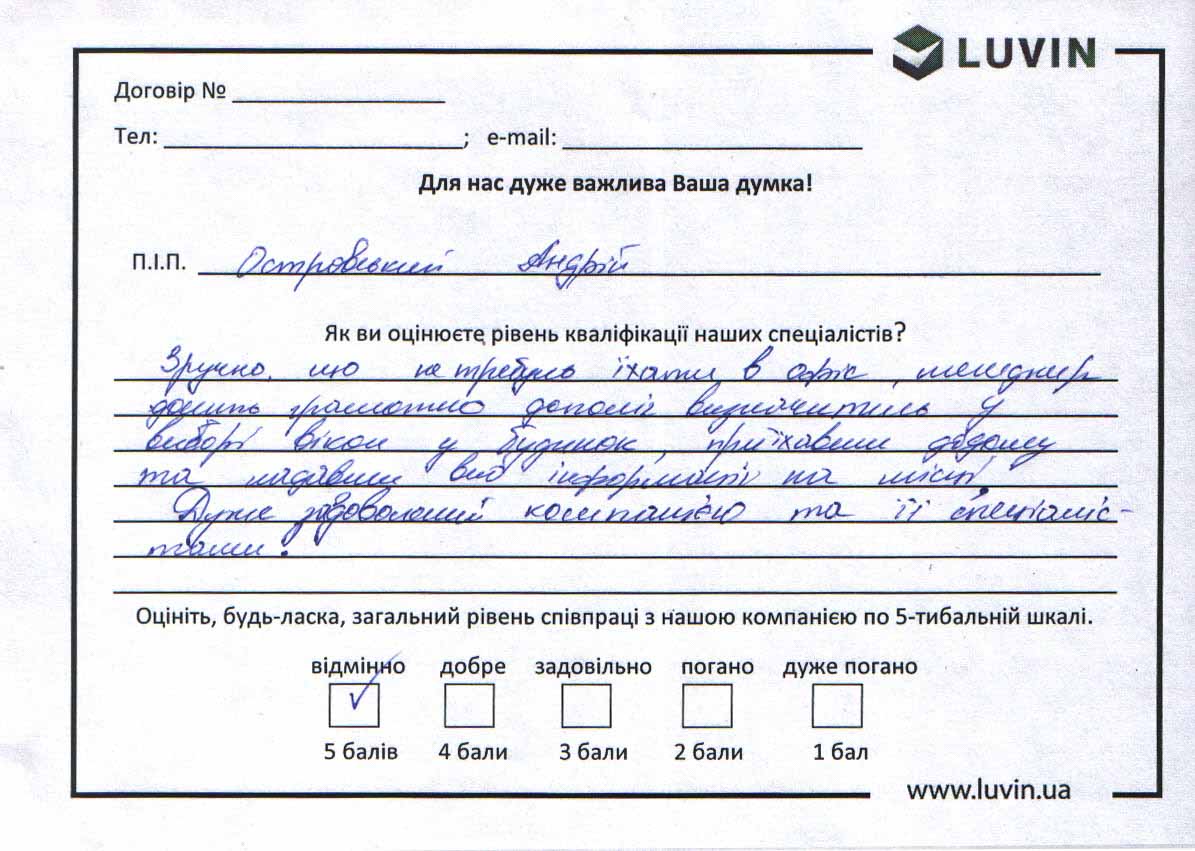 LUVIN
Договір №
Тел: ; e-mail:
Для нас дуже важлива Ваша думка!
П.І.П. Островський Андрій
Як ви оцінюєте рівень кваліфікації наших спеціалістів?
Зручно, що не требуль їхати в офіс, менеджер
грамотно допоміг визначитись у
виборі вікон у будинок, приїхавши додому
та надавши всю інформацію на місці.
Дуже задоволений компанією та її спеціаліс-
тами.
Оцініть, будь-ласка, загальний рівень співпраці з нашою компанією по 5-тибальній шкалі.
відмінно добре задовільно погано дуже погано
5 балів 4 бали 3 бали 2 бали 1 бал
www.luvin.ua